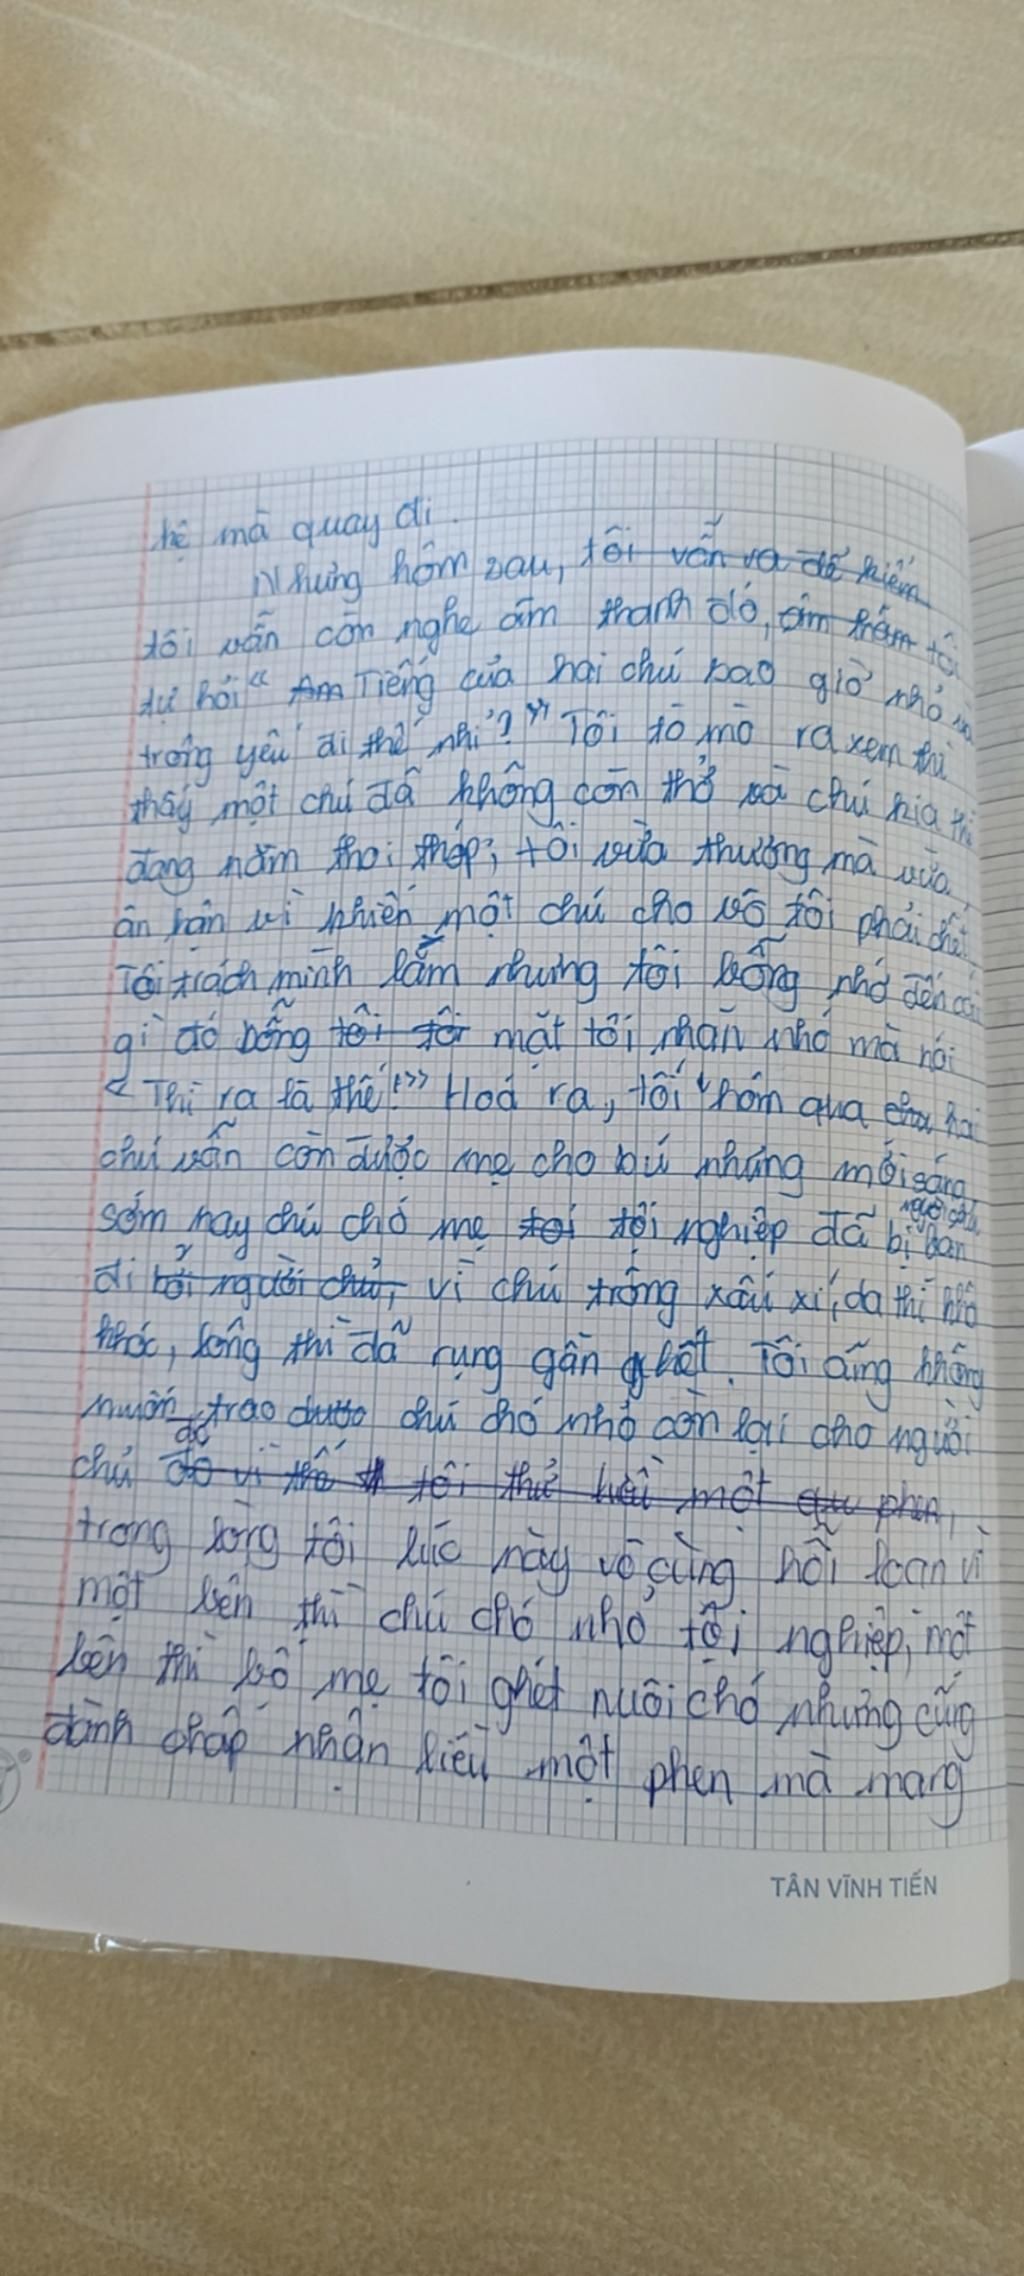 hệ mà quay đi.
Nhưng hôm sau, tôi vẫn ra để kiếm
tôi vẫn còn nghe âm thanh đó, âm thầm tôi
tự hỏi "Âm Tiếng của hai chú bao giờ nhỏ và
trong yếu đi thế nhỉ?" Tôi tò mò ra xem thì
thấy một chú đã không còn thở và chú kia thì
đang nằm thoi thóp; tôi vừa thương mà vừa
ân hận vì khiến một chú cho vô tôi phải chết.
Tôi trách mình lắm nhưng tôi bỗng nhớ đến cái
gì đó bỗng tôi tôi mặt tôi nhăn nhó mà nói
"Thì ra là thế!" Hoá ra, tối hôm qua chú hai
chú vẫn còn được mẹ cho bú nhưng mới sáng
người ta
sớm nay chú chó mẹ tội tội nghiệp đã bị bán
đi bởi người chủ, vì chú trông xấu xí, da thì khô
khóc, lông thì đã rụng gần hết. Tôi cũng không
muốn trao được chú chó nhỏ còn lại cho người
chủ đó vì thế tôi thử liều một phen,
trong lòng tôi lúc này vô cùng hỗi loạn vì
một bên thì chú chó nhỏ tội nghiệp, một
bên thì bố mẹ tôi ghét nuôi chó nhưng cũng
đành chấp nhận liều một phen mà mang
TÂN VĨNH TIẾN